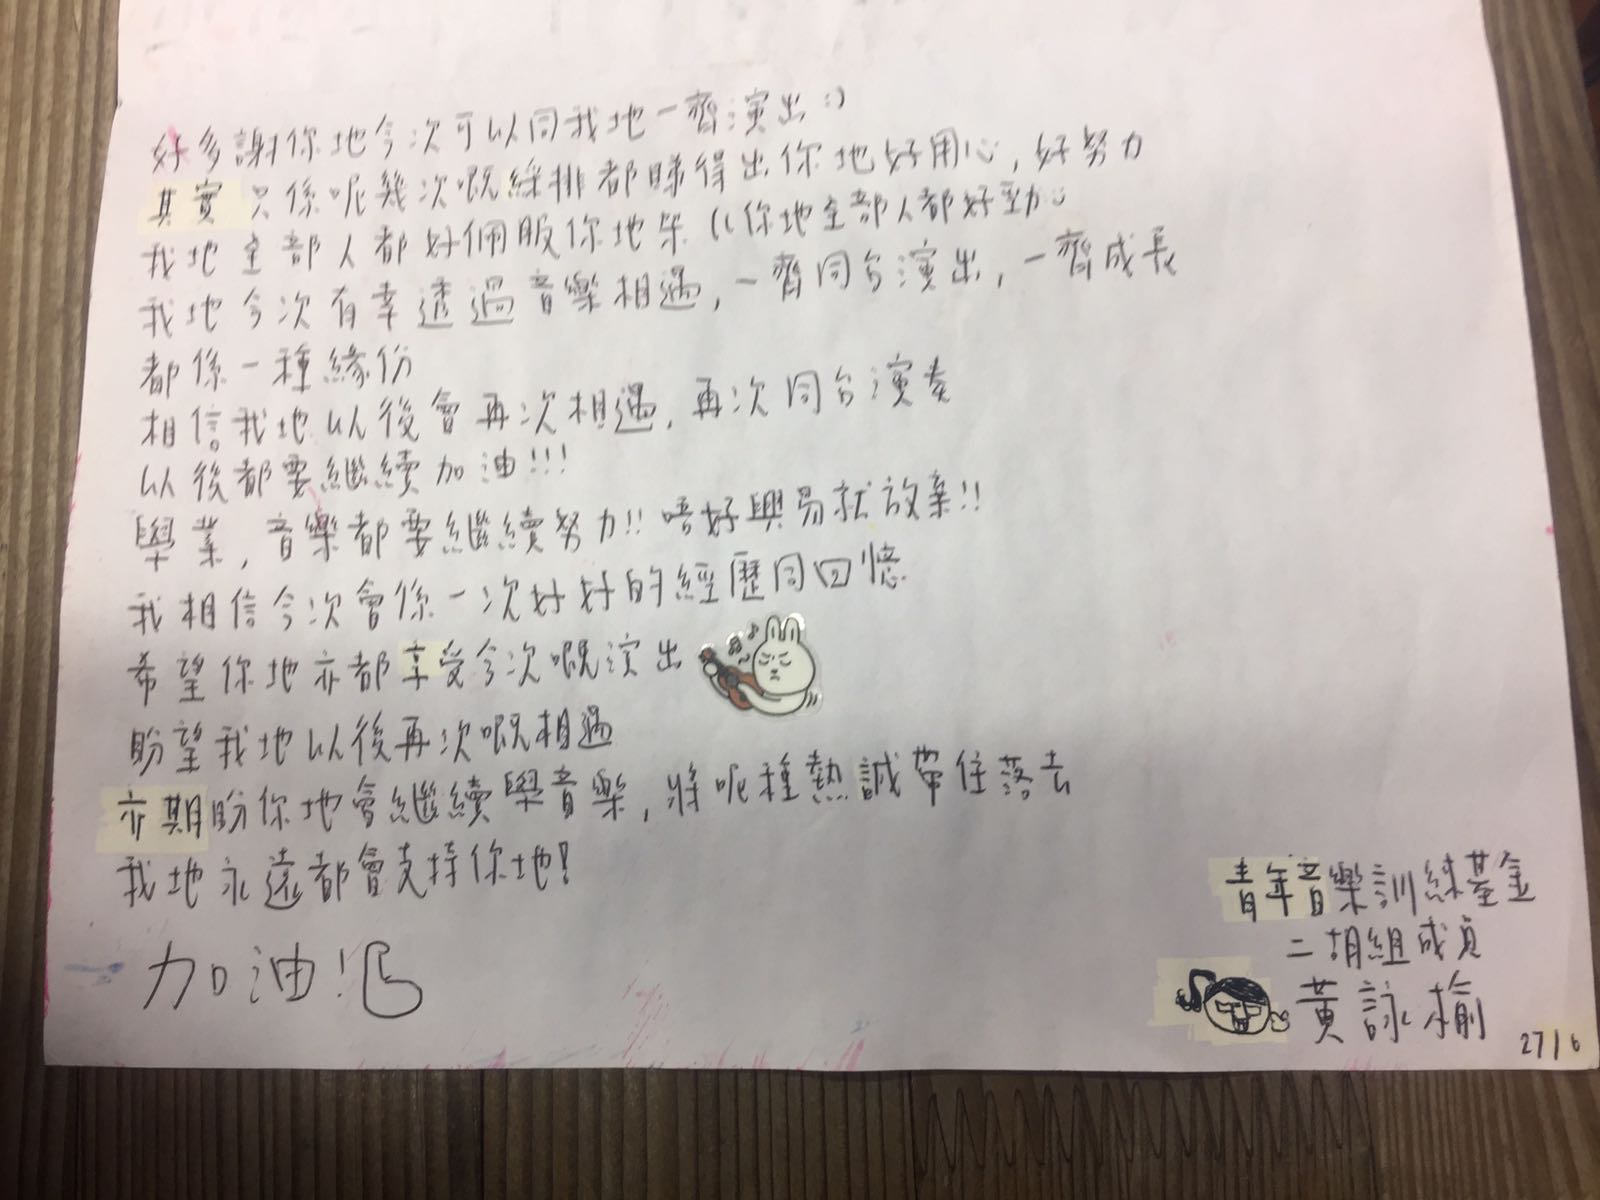 好多謝你地今次可以同我地一齊演出:)
其實只係呢幾次嘅綵排都睇得出你地好用心,好努力
我地全部人都好佩服你地架((你地全部人都好勁:)
我地今次有幸透過音樂相遇,一齊同台演出,一齊成長
都係一種緣份
相信我地以後會再次相遇,再次同台演奏
以後都要繼續加油!!!
學業,音樂都要繼續努力!! 唔好輿易就放棄!!
我相信今次會係一次好好的經歷同回憶
希望你地亦都享受今次嘅演出
盼望我地以後再次嘅相遇
亦期盼你地會繼續學音樂,將呢種熱誠帶住落去
我地永遠都會支持你地!
加油!
青年音樂訓練基金
二胡組成員
黃詠榆
27/6